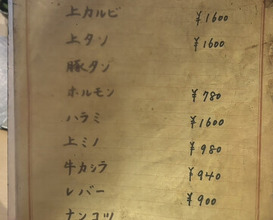 上カルビ ¥1600
上タン ¥1600
豚タン
ホルモン ¥780
ハラミ ¥1600
上ミノ ¥980
牛カシラ ¥940
レバー ¥900
ナンコツ